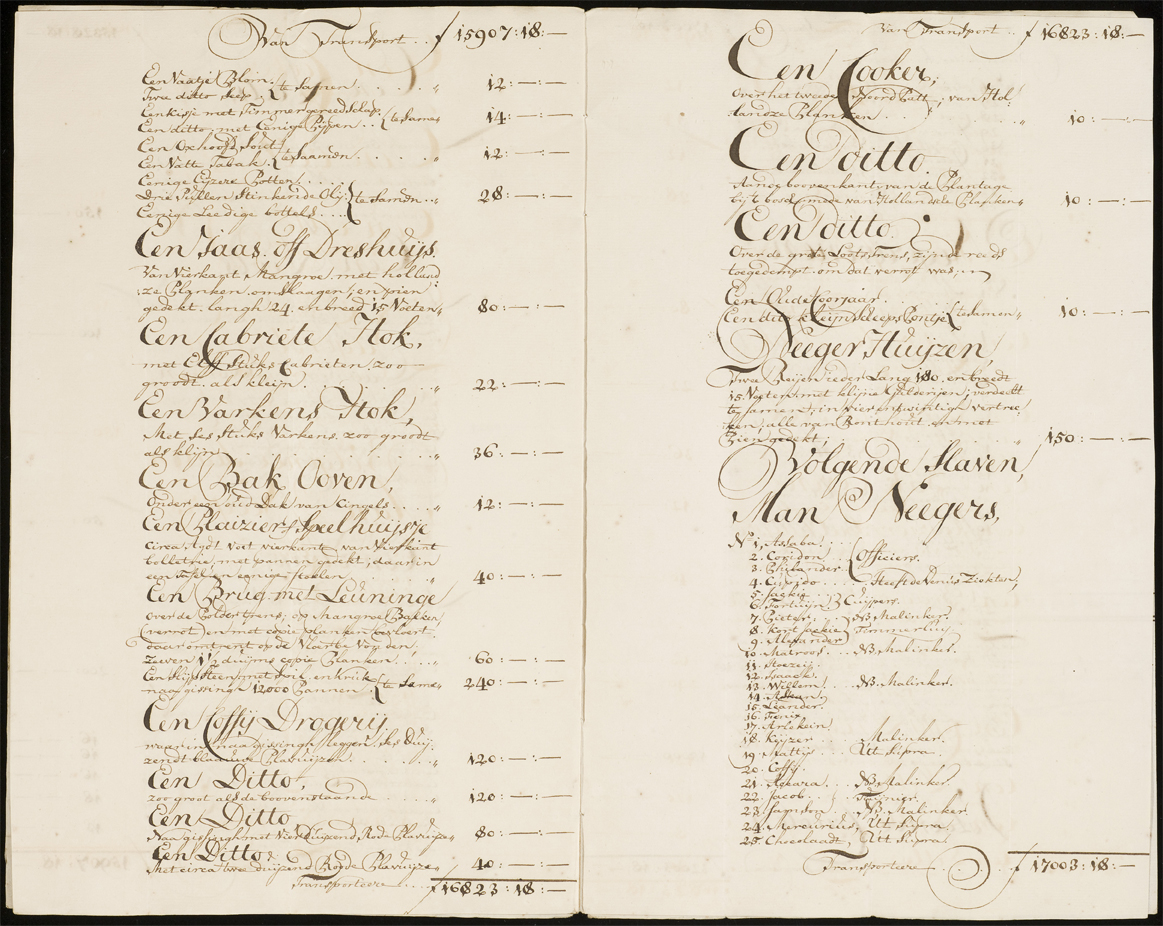 Van Transport .. ƒ 15907:18:—
Een Vaatje Bloin.
Twa ditto Seep. } te samen . . . „ 12:—:—
Een kisje met Timmergereedschap
Een ditto, met Eenige Pijpen . . { te same „ 14:—:—
Een Oxhooft Soiet
Een Vatte Tabak { te saamen . . . . „ 12:—:—
Eenige Eyzere Potten . . . .
Drie Pullen Stinkende Olij { te Samen . . „ 28:—:—
Eenige Leedige bottels . . .
Een Jaas. off Dreshuijs.
Van Vierkant Mangroe, met holland
ze Planken, omslaagen, en pien
gedekt. langh 24. en breed 15 Voeten „ 80:—:—
Een Cabriete Hok,
met Elff Stuks Cabrieten, zoo
groodt. als kleijn . . . . . „ 22:—:—
Een Varkens Hok,
Met Ses Stuks Varkens. zoo groodt
als klijn . . . . . „ 36:—:—
Een Bak Ooven,
Onder een oud Dak van Cingels . . . . „ 12:—:—
Een Plaizier Speelhuijsje
circa. Agdt Voet vierkant, van Vierkant
bolletrie, met pannen gedekt; daar in
een Tafel en eenige Stoelen . . . „ 40:—:—
Een Brug met Leuninge
over de Polder trens, op Mangroe Balken
(verrot) en met copie planken bevloert.
daar omtrent op de Vlarke Vonden,
zeven 1½ duijms copie Planken . . . . „ 60:—:—
Een Slijp Steen met Spil, en kruk
naa gissingh 12000 Pannen { te same „ 240:—:—
Een Coffij Drogerij
waar in naa gissingh, leggen, Ses Duij
zendt blaauwe Plavuijzen . . „ 120:—:—
Een Ditto,
zoo groot als de boovenstaande . . . . „ 120:—:—
Een Ditto
Naa gissingh met Vier Duijzend, Rode Plavuijze „ 80:—:—
Een Ditto
Met circa twee duijzend Roode Plavuijze „ 40:—:—
Transporteere . . . . ƒ 16823:18:—
Van Transport .. ƒ 16823:18:—
Een Cooker,
Over het tweede Spoord Patt, van Hol
landze Planken . . . . „ 10:—:—
Een ditto.
Aan de boovenkant, van de Plantage
bij 't bosch, mede van Hollandsche Planken „ 10:—:—
Een ditto.
Over de groote Loots trens, zijnde reeds
toegedempt, om dat verrot was
Een Oude Coorjaar . . . .
Een dito kleijn Sleeps Pontje { te samen „ 10:—:—
Neeger Huijzen,
Twee Reijen ieder Lang 180. en breedt
15 Voeten, met klijne Gaiderijen, verdeelt
te samen, in vier en twintigh vertree
ken, alle van Ronthout, en met
Pien gedekt; „ 150:—:—
Volgende Slaven,
Man Neegers,
No 1, Assaba . . .
2. Coridon } Officiers.
3. Philander
4. Cupido . . . . Heeft de Venus Ziekten,
5. Jackij
6. Fortuijn } Cuijpers.
7. Pieter . . } NB. Malinker.
8. Kort Jackie } Timmerlui.
9. Alexander
10. Matroos . . NB. Malinker.
11.
12. Isaack.
13. Willem . . . NB. Malinker.
14.
15. Leander.
16. Fenix
17. Arlekein
18. Kijzer Malinker.
19. Mattijs . . Ut Supra.
20. Coffij.
21. Aquara . . NB. Malinker.
22. Jacob . .
23. Sampson . . NB. Malinker.
24. Mercurius, Ut Supra.
25. Chocolaadt, Ut Supra.
Transporteere . . . ƒ 17003:18:—